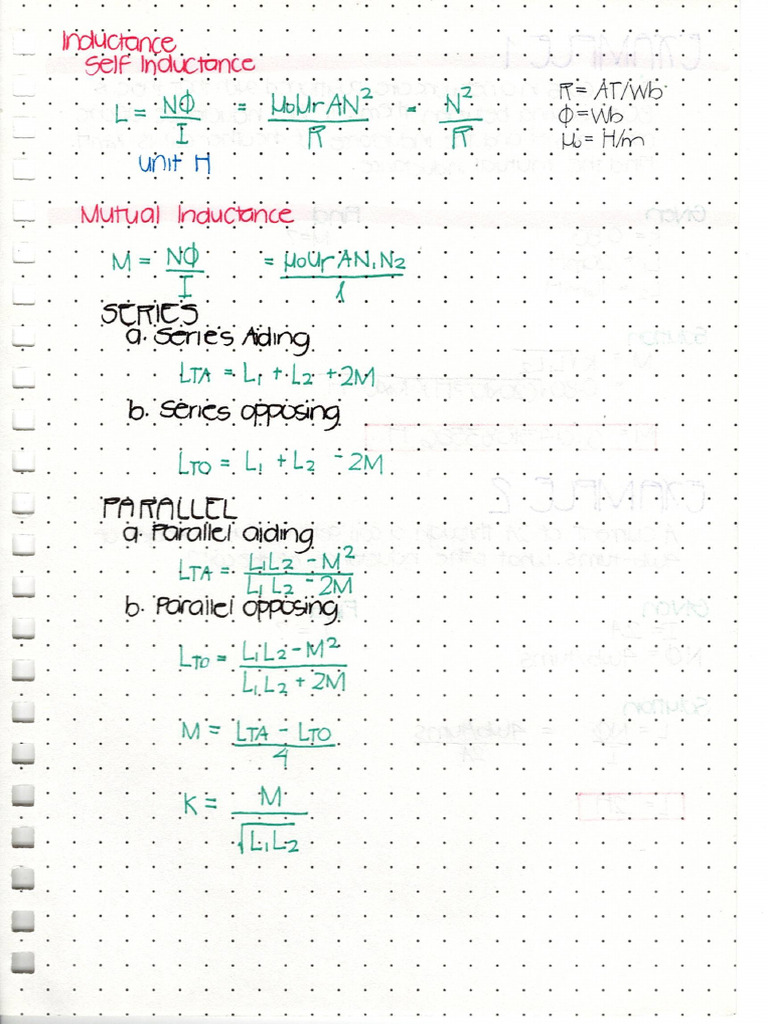 Inductance
Self Inductance
L = NΦ/I = μoμrAN²/R = N²/R
R = AT/Wb
Φ = Wb
μo = H/m
unit H
Mutual Inductance
M = NΦ/I = μoμrAN1N2/l
SERIES
a. Series Aiding
LTA = L1 + L2 + 2M
b. Series opposing
LTO = L1 + L2 - 2M
PARALLEL
a. Parallel aiding
LTA = L1L2 - M²/L1L2 - 2M
b. Parallel opposing
LTO = L1L2 - M²/L1L2 + 2M
M = LTA - LTO/4
K = M/√L1L2